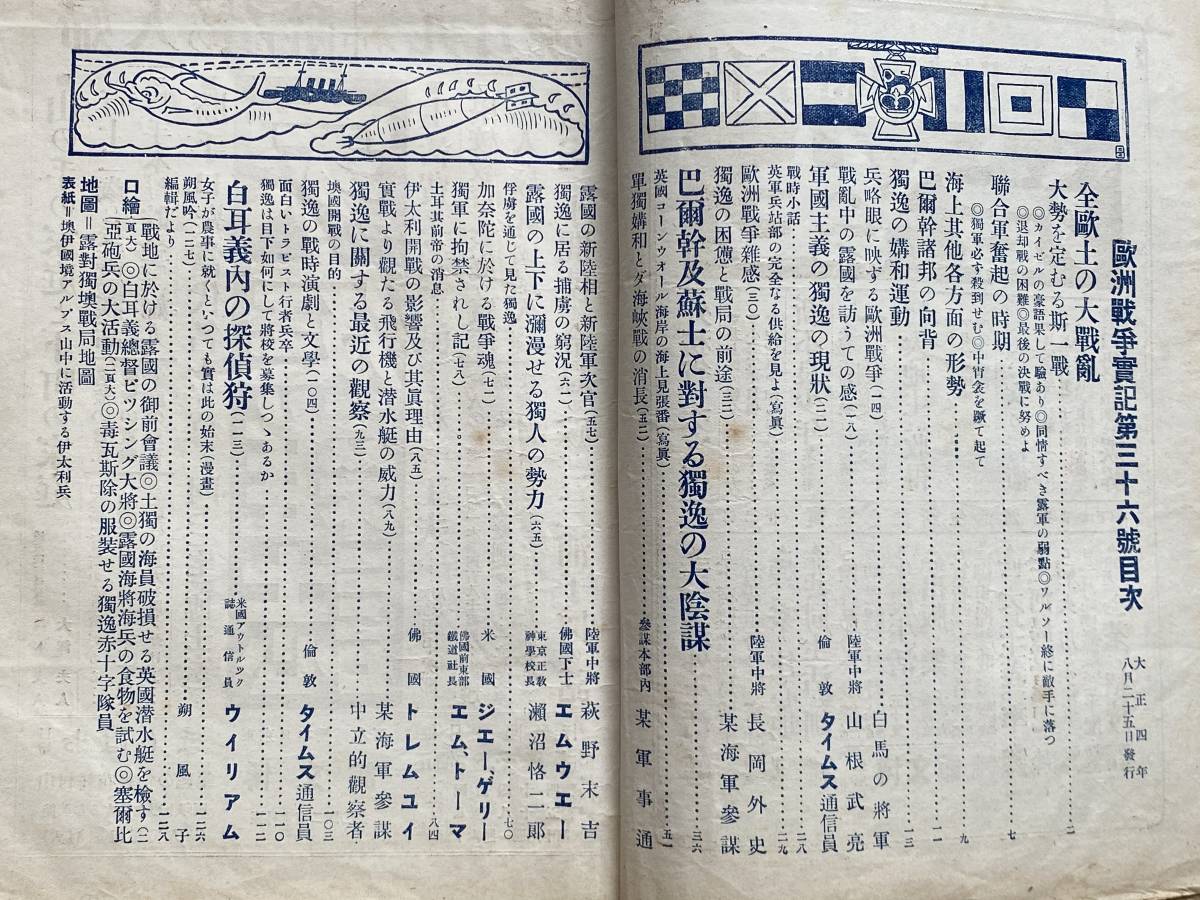 歐洲戰爭實記第三十六號目次
大正四年
八月二十五日發行
全歐土の大戰亂
大勢を定むる斯一戰……二
◎カイゼルの豪語果して驗あり◎同情すべき露軍の弱點◎ワルソー終に敵手に落つ
◎退却戰の困難◎最後の決戰に努めよ
聯合軍奮起の時期……七
◎獨軍必す殺到せむ◎中宵衾を蹴て起て
海上其他各方面の形勢……九
巴爾幹諸邦の向背……一一
獨逸の媾和運動……一三
兵略眼に映ずる歐洲戰爭(一四) 白馬の將軍
戰亂中の露國を訪うての感(一八)……陸軍中將 山根武亮
軍國主義の獨逸の現狀(二二)……倫敦タイムス通信員
戰時小話……二八
英軍兵站部の完全なる供給を見よ(寫眞)……二九
歐洲戰爭雜感(三〇)……陸軍中將 長岡外史
獨逸の困憊と戰局の前途(三二)……某海軍參謀
巴爾幹及蘇士に對する獨逸の大陰謀……三六
英國コーンウオール海岸の海上見張番(寫眞)……五一
單獨媾和とダ海峽戰の消長(五二)……參謀本部內 某軍事通
露國の新陸相と新陸軍次官(五七)……陸軍中將 萩野末吉
獨逸に居る捕虜の窮況(六一)……佛國下士 エムウエー
露國の上下に瀰漫せる獨人の勢力(六五)……東京正敎神學校長 瀨沼恪二郎
俘虜を通じて見た獨逸……七〇
加奈陀に於ける戰爭魂(七二)……米國 ジエーゲリー
獨軍に拘禁されし記(七八)……佛國前東部鐵道社長 エム、トーマ
土耳其前帝の消息……八四
伊太利開戰の影響及び其眞理由(八五)……佛國 トレムユイ
實戰より觀たる飛行機と潜水艇の威力(八九) 某海軍參謀
獨逸に關する最近の觀察(九三)……中立的觀察者
墺國開戰の目的……一〇三
獨逸の戰時演劇と文學(一〇四)……倫敦タイムス通信員
面白いトラピスト行者兵卒……一一〇
獨逸は目下如何にして將校を募集しつゝあるか……一一二
白耳義內の探偵狩(一一三)……米國アウトルツク誌通信員 ウイリアム
女子が農事に就くといつても實は此の始末(漫畫)……一二六
朔風吟(一二七)……朔風子
編輯だより……一二八
口繪(二頁大)戰地に於ける露國の御前會議◎土獨の海員破損せる英國潜水艇を檢す(二頁大)◎白耳義總督ビツシング大將◎露國海將海兵の食物を試む◎塞爾比亞砲兵の大活動(二頁大)◎毒瓦斯除の服裝せる獨逸赤十字隊員
地圖=露對獨墺戰局地圖
表紙=墺伊國境アルプス山中に活動する伊太利兵